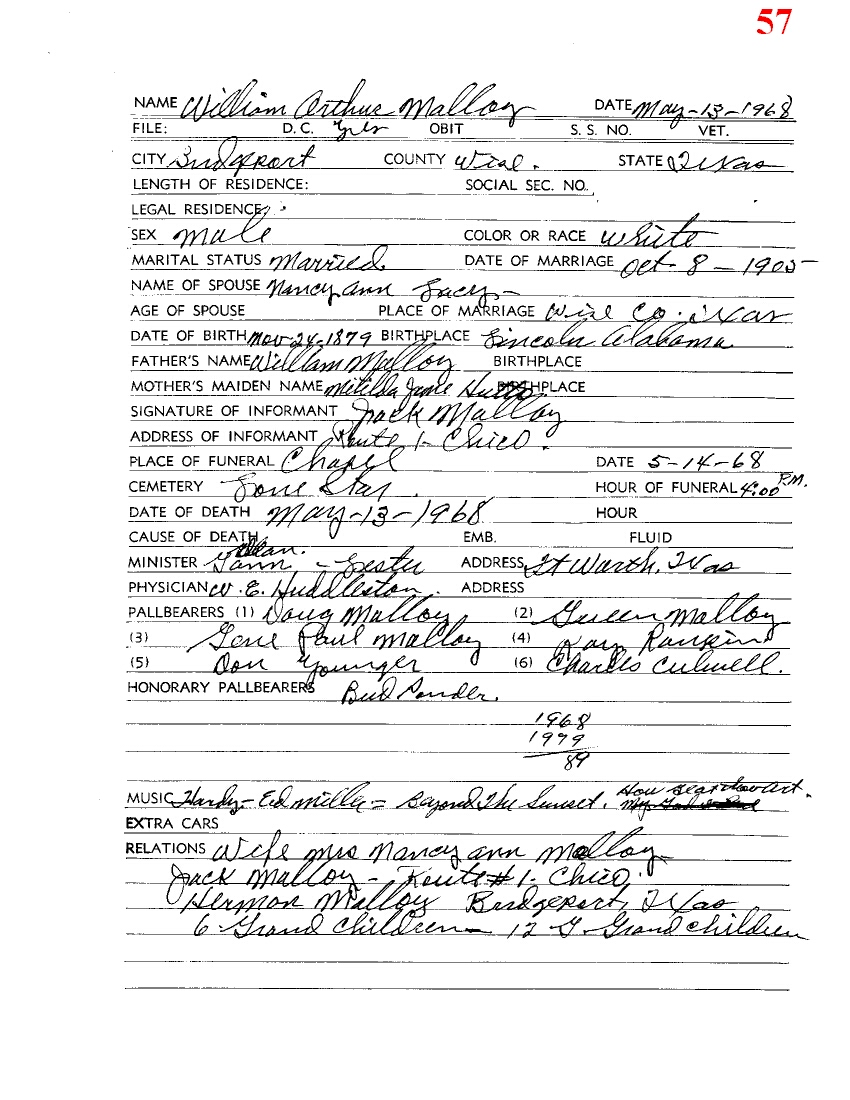 57
NAME William Arthur Malloy DATE May-13-1968
FILE: D.C. yes OBIT S. S. NO. VET.
CITY Bridgeport COUNTY Wise. STATE Texas
LENGTH OF RESIDENCE: SOCIAL SEC. NO.
LEGAL RESIDENCE
SEX Male COLOR OR RACE White
MARITAL STATUS Married. DATE OF MARRIAGE Oct-8-1905
NAME OF SPOUSE Nancy Ann Lacy
AGE OF SPOUSE PLACE OF MARRIAGE Wise Co. Texas
DATE OF BIRTH Nov-24-1879 BIRTHPLACE Lincoln Alabama
FATHER'S NAME William Malloy BIRTHPLACE
MOTHER'S MAIDEN NAME Mitilda Jane BIRTHPLACE
SIGNATURE OF INFORMANT Jack Malloy
ADDRESS OF INFORMANT Route 1- Chico.
PLACE OF FUNERAL Chapel DATE 5-14-68
CEMETERY Lone Star. HOUR OF FUNERAL 4:00 P.M.
DATE OF DEATH May-13-1968 HOUR
CAUSE OF DEATH EMB. FLUID
MINISTER Lester ADDRESS Ft Worth, Texas
PHYSICIAN W. E. Huddleston. ADDRESS
PALLBEARERS (1) Doug Malloy (2) Malloy
(3) Gene Paul Malloy (4) Ray Rankin
(5) Don Younger (6) Charles Culwell.
HONORARY PALLBEARERS Bud Ponder.
1968
1979
89
MUSIC Hardy- Ed Miller = Beyond The Sunset. How Great Thou Art.
EXTRA CARS
RELATIONS Wife Mrs Nancy Ann Malloy
Jack Malloy - Route #1- Chico.
Hermon Malloy Bridgeport, Texas
6 Grand Children - 12 G- Grand Children